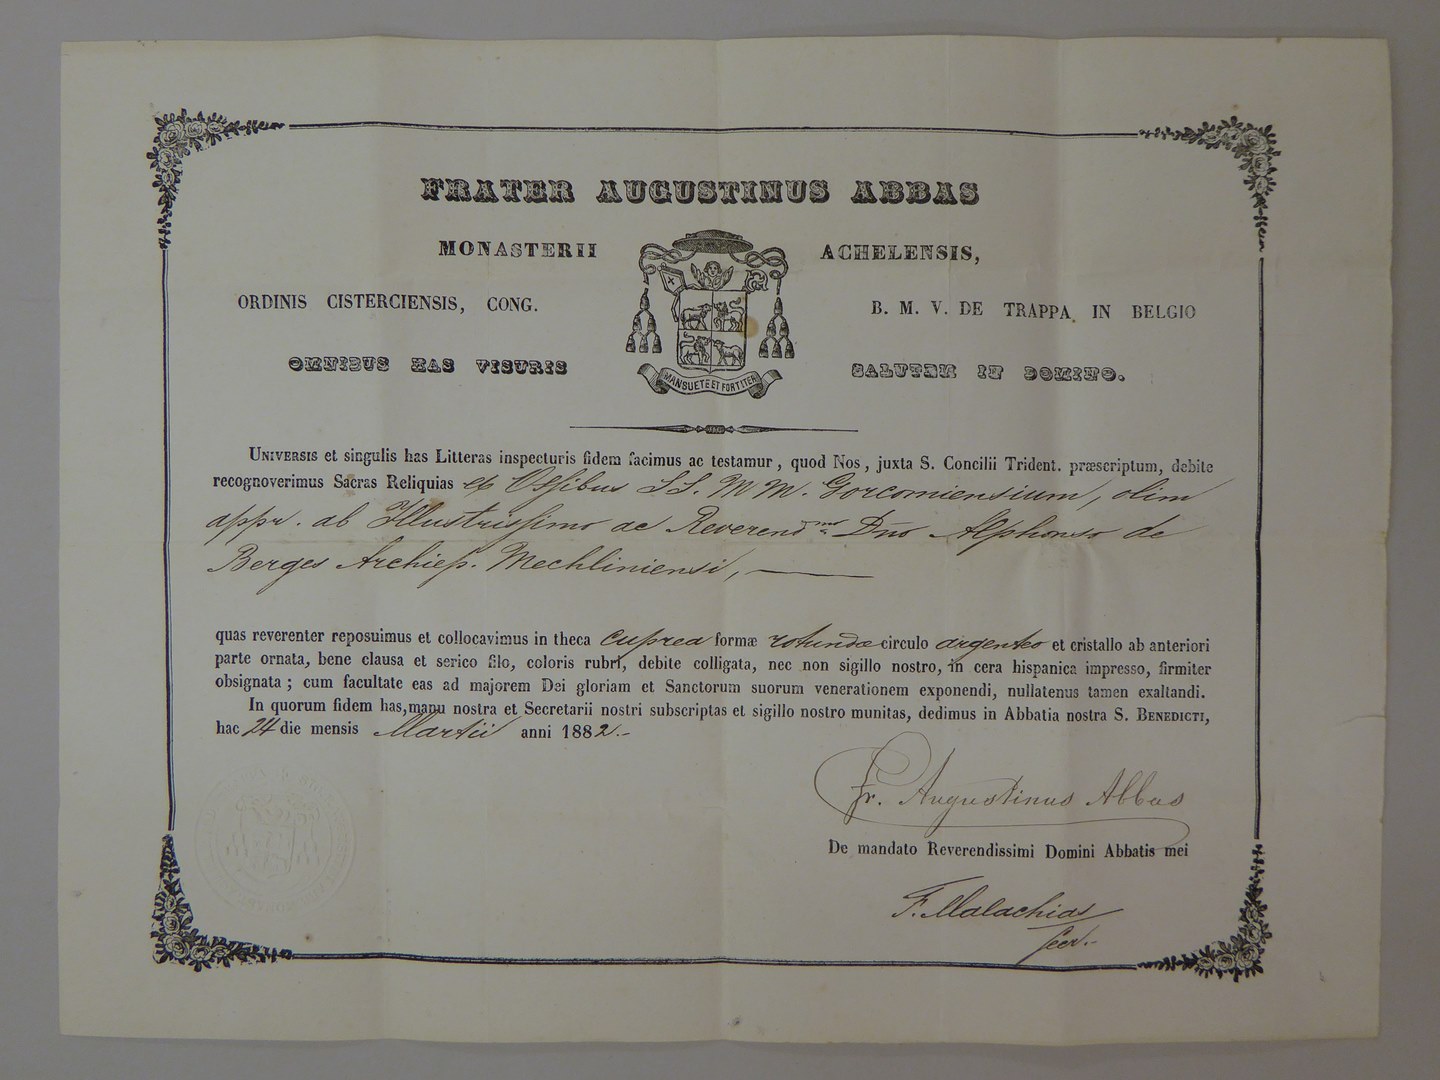 FRATER AUGUSTINUS ABBAS
MONASTERII ACHELENSIS,
ORDINIS CISTERCIENSIS, CONG. B. M. V. DE TRAPPA IN BELGIO
OMNIBUS HAS VISURIS SALUTEM IN DOMINO.
MANSUETE ET FORTITER
UNIVERSIS et singulis has Litteras inspecturis fidem facimus ac testamur, quod Nos, juxta S. Concilii Trident. præscriptum, debite
recognoverimus Sacras Reliquias ex Ossibus SS. M M. Gorcomiensium, olim
appr. ab Illustrissimo ac Reverendmo Dño Alphonso de
Berges Archiep. Mechliniensi, —
quas reverenter reposuimus et collocavimus in theca cuprea formæ rotundæ circulo argenteo et cristallo ab anteriori
parte ornata, bene clausa et serico filo, coloris rubri, debite colligata, nec non sigillo nostro, in cera hispanica impresso, firmiter
obsignata ; cum facultate eas ad majorem Dei gloriam et Sanctorum suorum venerationem exponendi, nullatenus tamen exaltandi.
In quorum fidem has, manu nostra et Secretarii nostri subscriptas et sigillo nostro munitas, dedimus in Abbatia nostra S. BENEDICTI,
hac 24 die mensis Martii anni 1882.-
Fr. Augustinus Abbas
De mandato Reverendissimi Domini Abbatis mei
F. Malachias
Secr.-